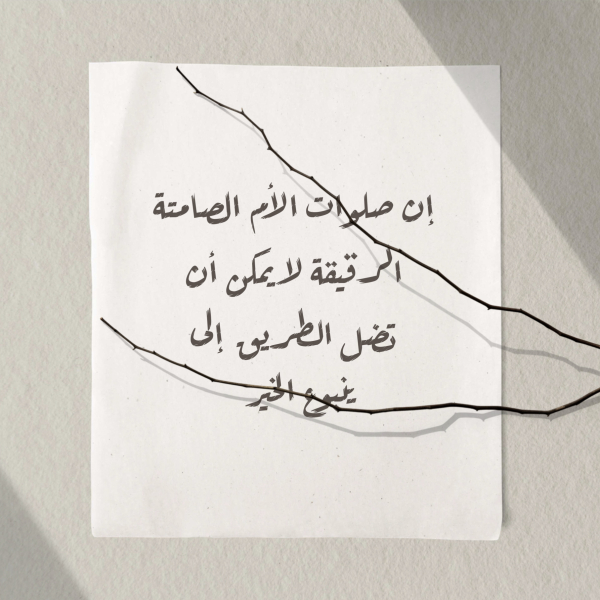 إن صلوات الأم الصامتة
الرقيقة لا يمكن أن
تضل الطريق إلى
ينبوع الخير